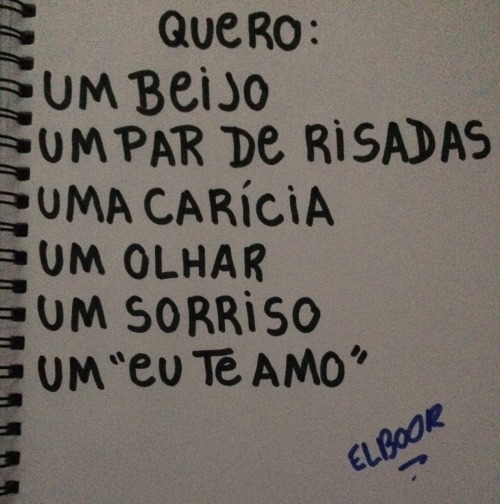 QUERO:
UM BEIJO
UM PAR DE RISADAS
UMA CARÍCIA
UM OLHAR
UM SORRISO
UM "EU TE AMO"
ELBOOR